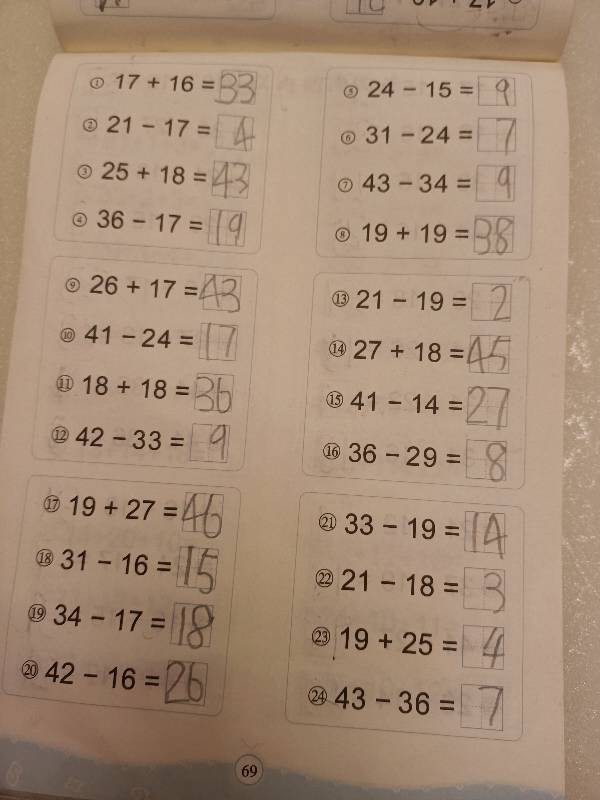 ① 17 + 16 = 33
② 21 − 17 = 4
③ 25 + 18 = 43
④ 36 − 17 = 19
⑤ 24 − 15 = 9
⑥ 31 − 24 = 7
⑦ 43 − 34 = 9
⑧ 19 + 19 = 38
⑨ 26 + 17 = 43
⑩ 41 − 24 = 17
⑪ 18 + 18 = 36
⑫ 42 − 33 = 9
⑬ 21 − 19 = 2
⑭ 27 + 18 = 45
⑮ 41 − 14 = 27
⑯ 36 − 29 = 8
⑰ 19 + 27 = 46
⑱ 31 − 16 = 15
⑲ 34 − 17 = 18
⑳ 42 − 16 = 26
㉑ 33 − 19 = 14
㉒ 21 − 18 = 3
㉓ 19 + 25 = 4
㉔ 43 − 36 = 7
69